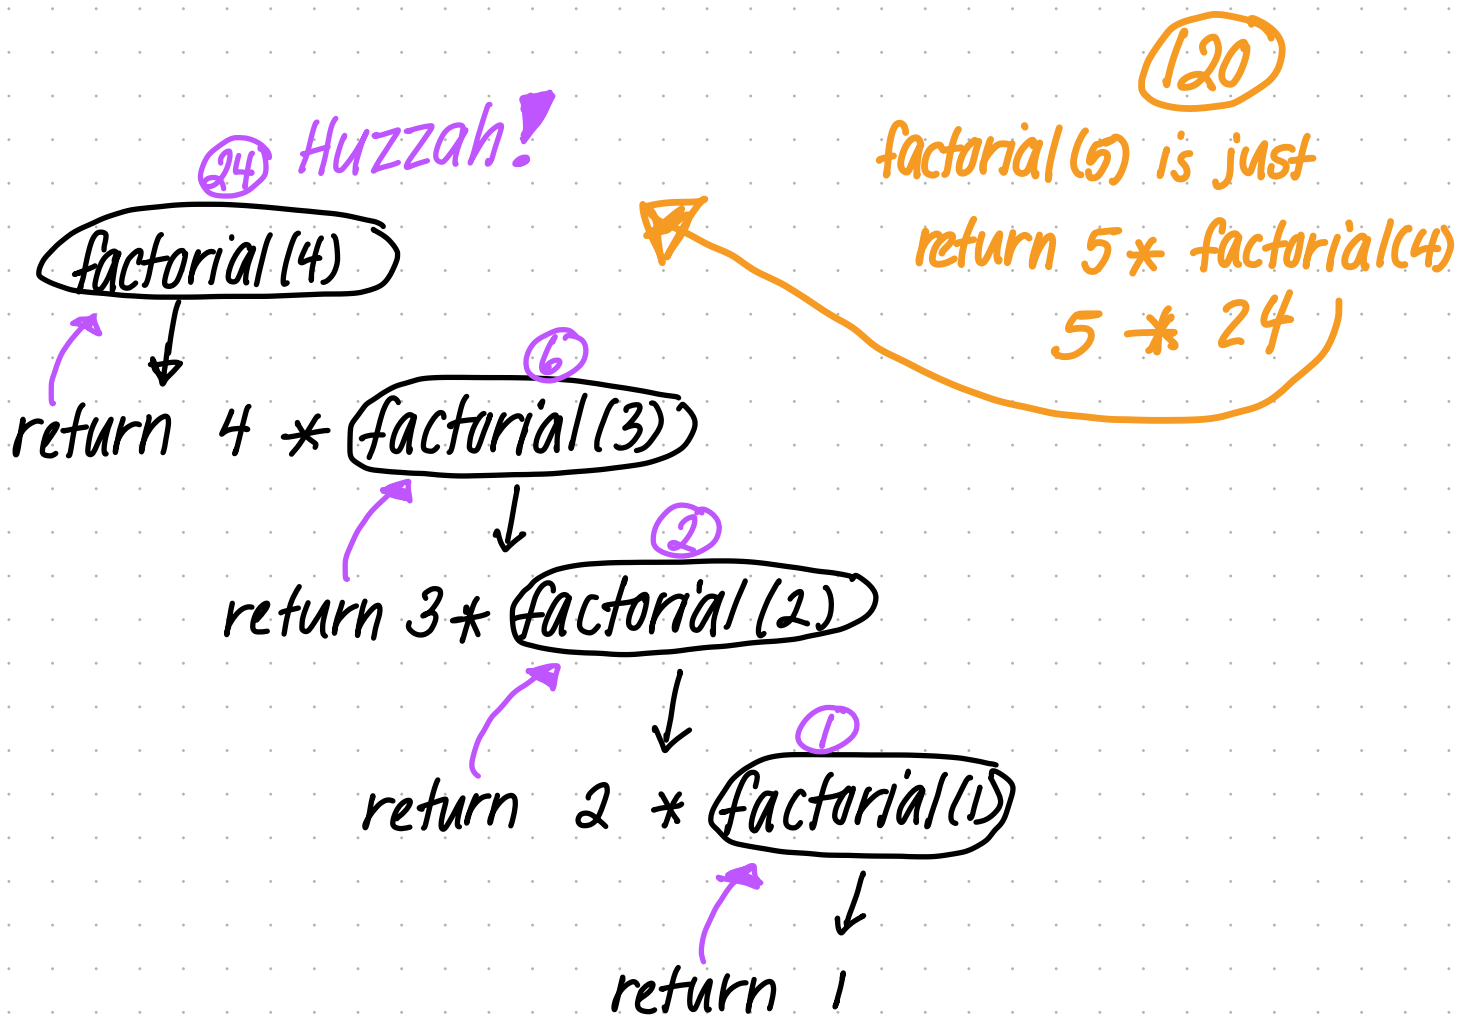 24 Huzzah!
factorial(4)
6
return 4 * factorial(3)
2
return 3 * factorial(2)
1
return 2 * factorial(1)
return 1
120
factorial(5) is just
return 5 * factorial(4)
5 * 24